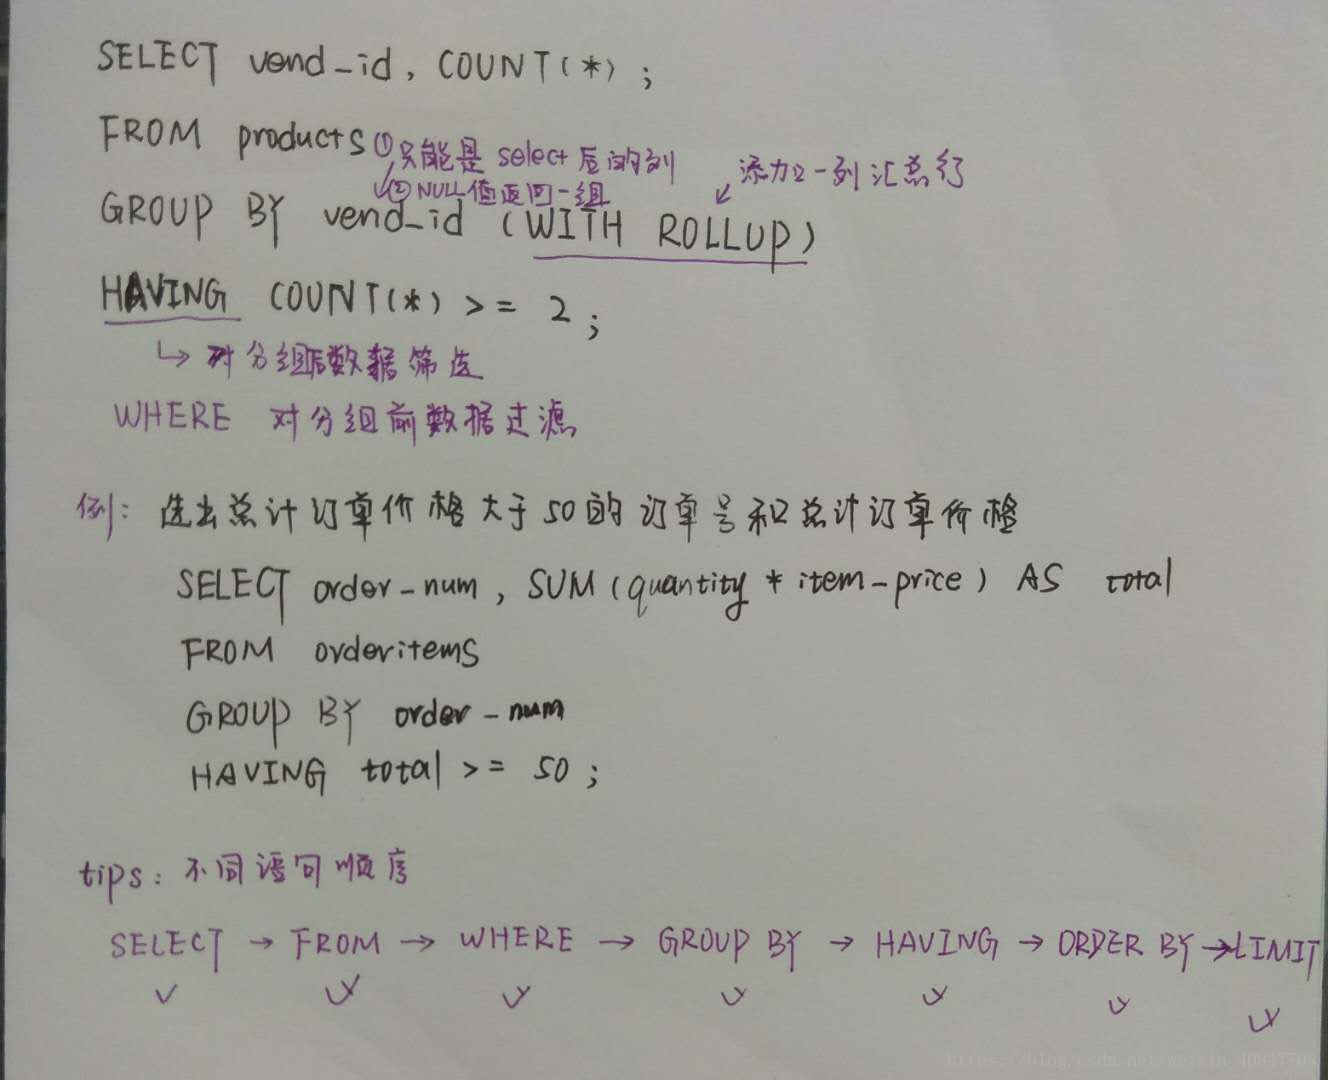 SELECT vend_id, COUNT(*);
FROM products
①只能是 select 后的列
②NULL值返回一组
添加一列汇总行
GROUP BY vend_id (WITH ROLLUP)
HAVING COUNT(*) >= 2;
↳ 对分组后数据筛选
WHERE 对分组前数据过滤
例: 选出总计订单价格大于50的订单号和总计订单价格
SELECT order_num, SUM(quantity * item_price) AS total
FROM orderitems
GROUP BY order_num
HAVING total >= 50;
tips: 不同语句顺序
SELECT → FROM → WHERE → GROUP BY → HAVING → ORDER BY → LIMIT
https://blog.csdn.net/weixin_40847708